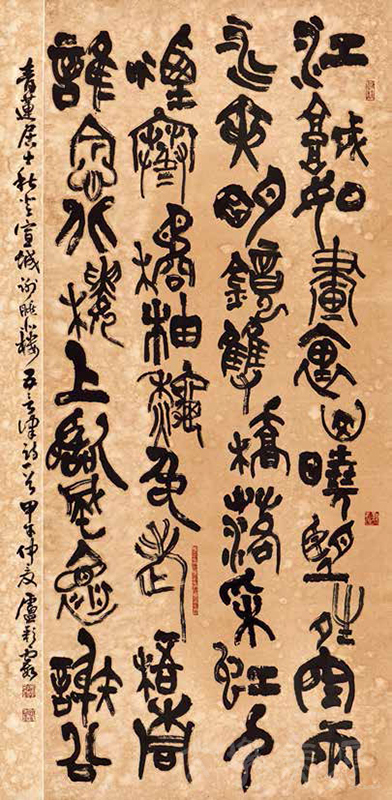 江城如畫裏山曉望晴空兩
水夾明鏡雙橋落采虹人
煙寒橘柚秋色老梧桐
誰念北樓上臨風懷謝公
青蓮居士秋登宣城謝朓北樓五言律詩一首甲午仲夏盧彩霞